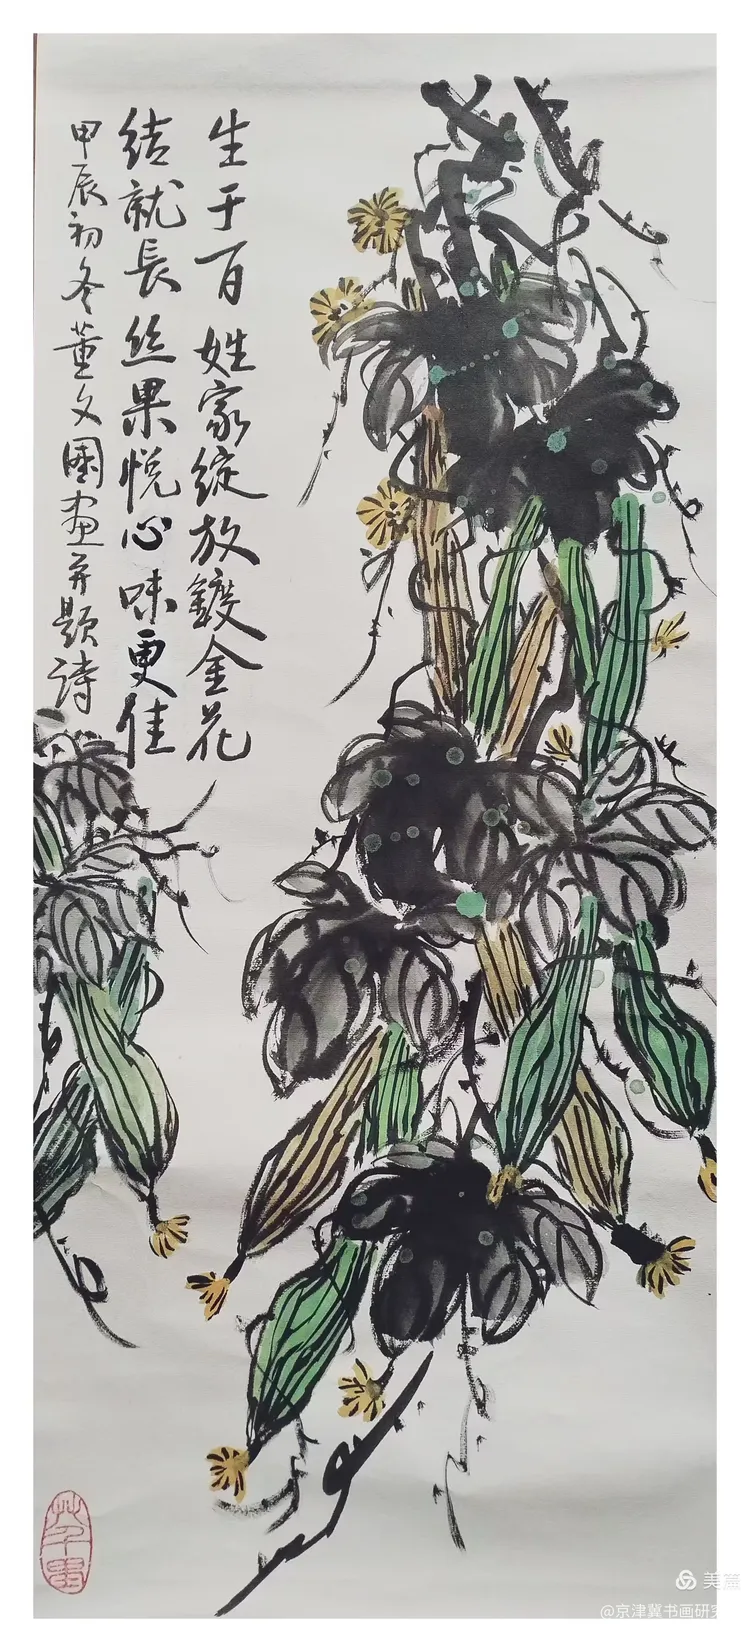 生于百姓家綻放鍍金花
结就長丝果悦心味更佳
甲辰初冬董文国画并题诗
美篇
@京津冀书画研究